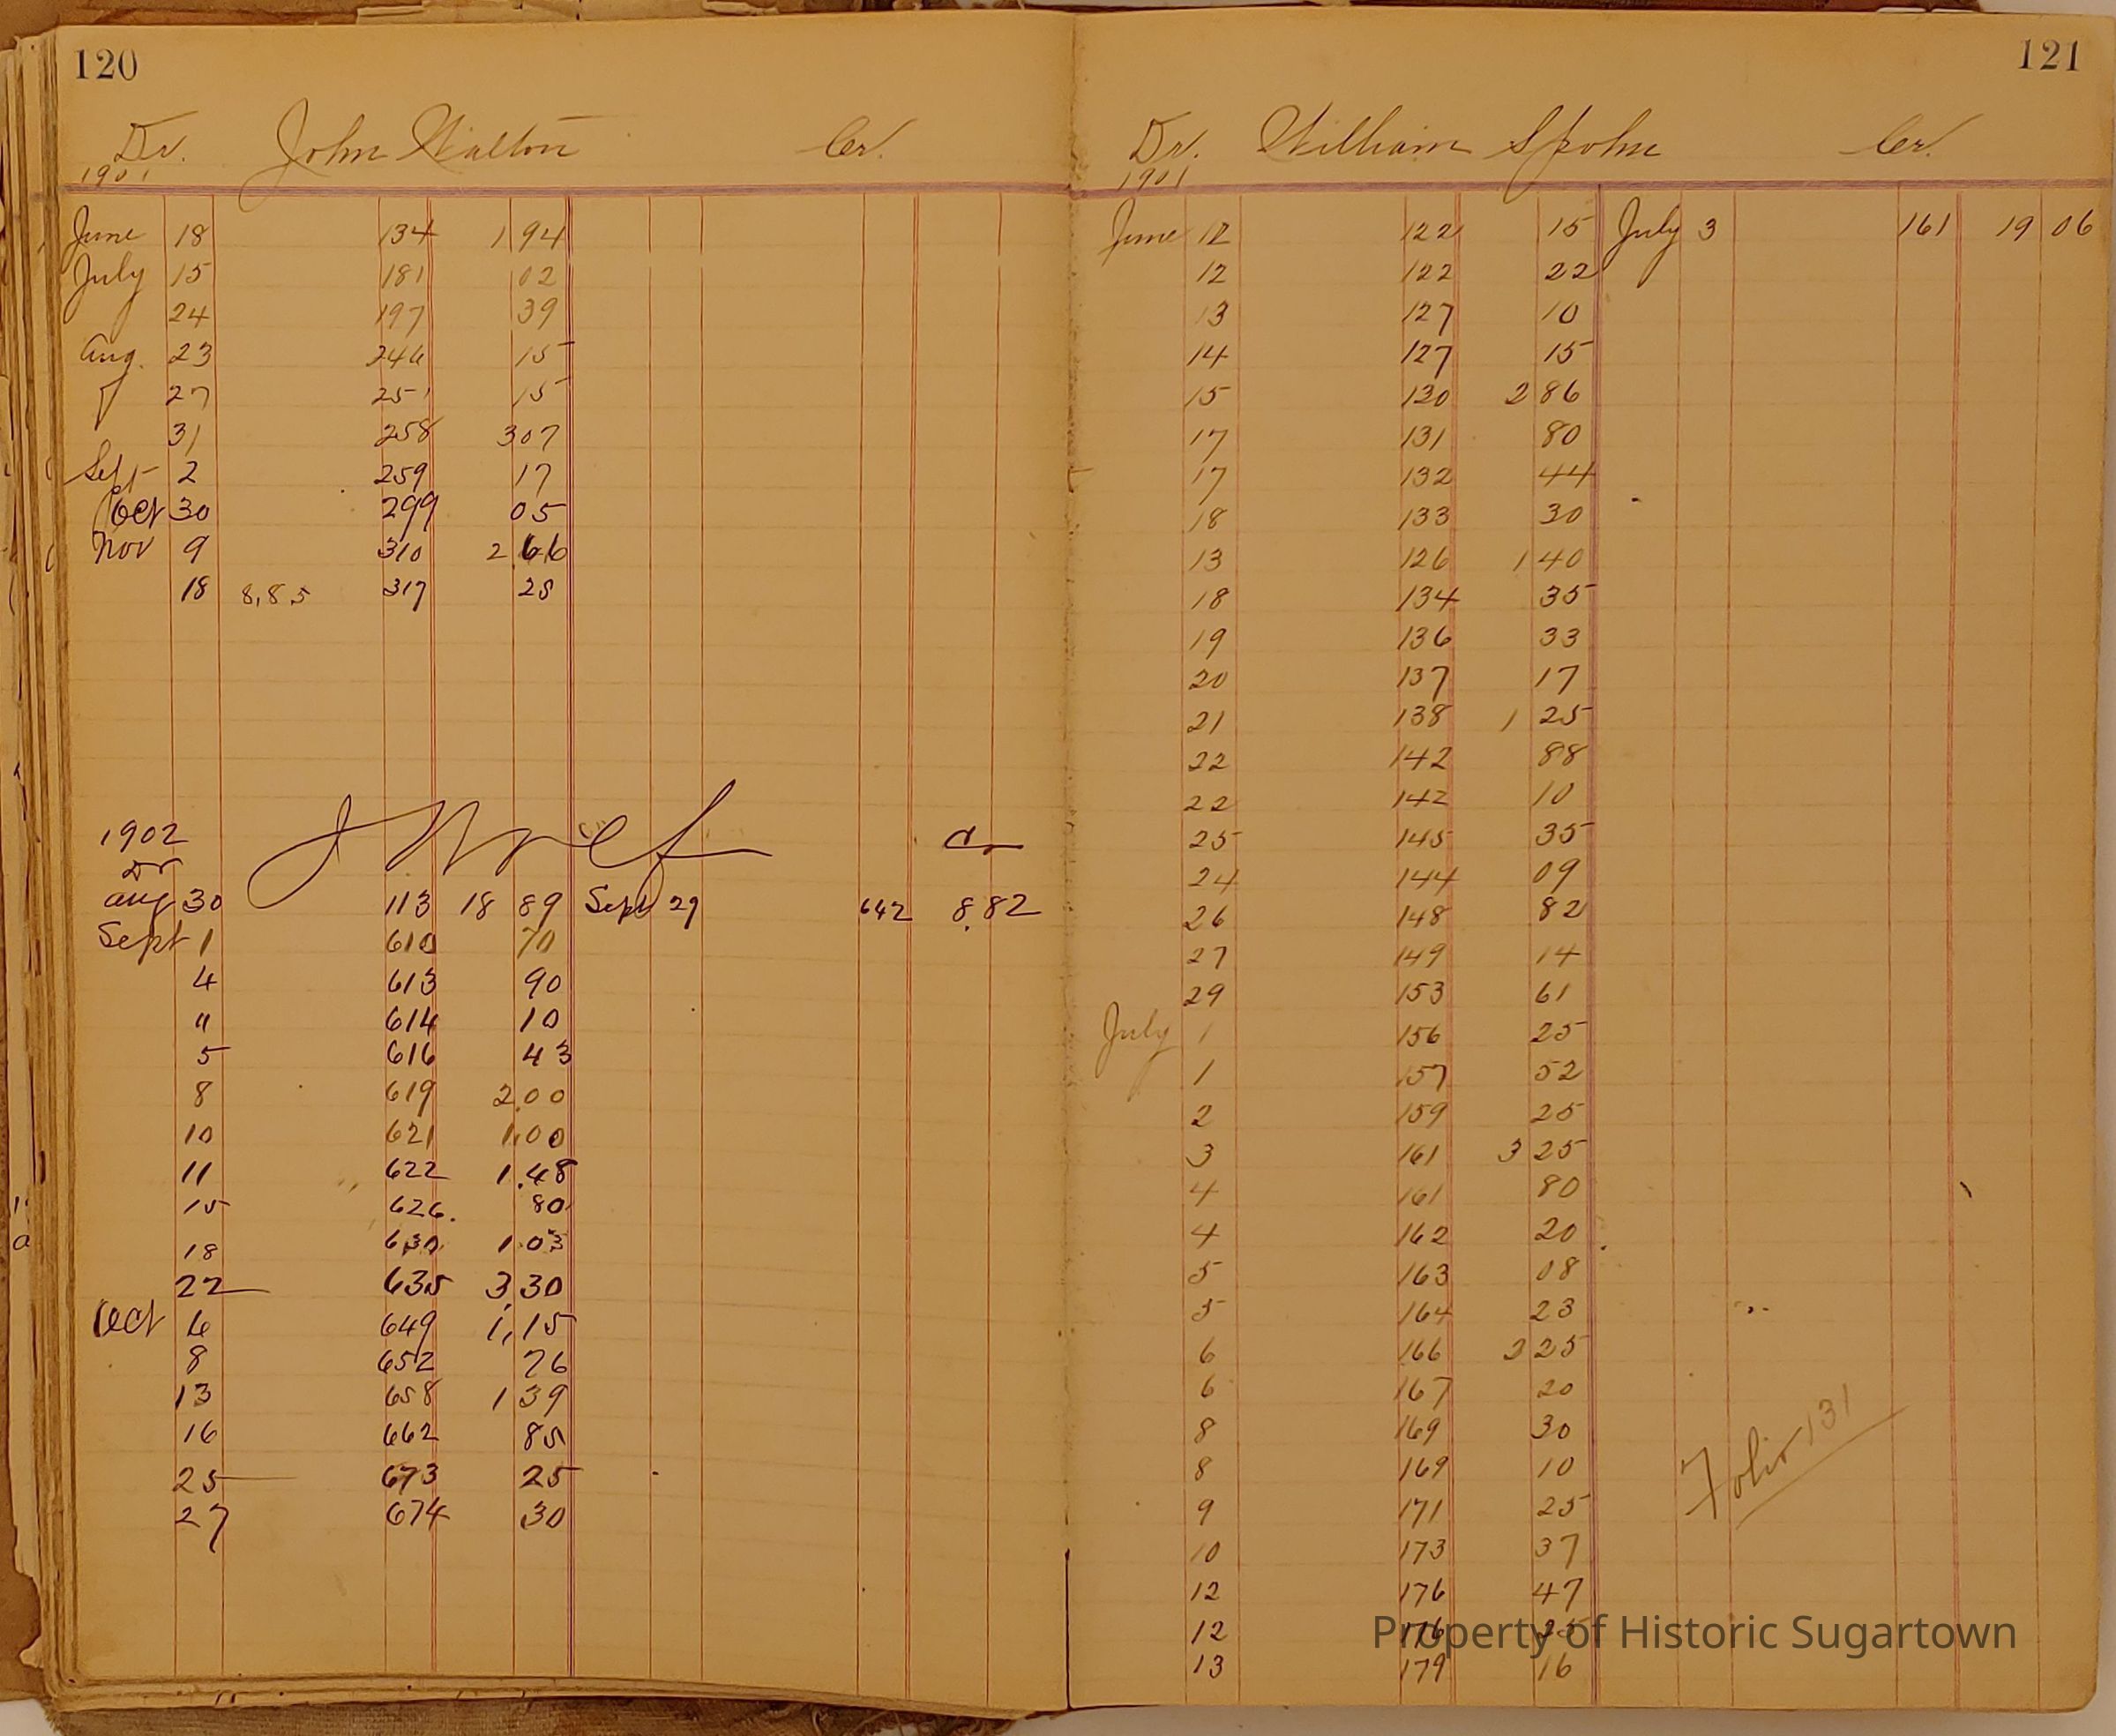 120
Dr. John Walton Cr.
1901
June 18 134 1 94
July 15 181 02
24 197 39
Aug. 23 246 15
27 251 15
31 258 3 07
Sept 2 259 17
Oct 30 299 05
Nov 9 310 2 66
18 8,85 317 25
1902
Dr Cr
Aug 30 113 18 89 Sept 29 642 8.82
Sept 1 610 70
4 613 90
" 614 10
5 616 43
8 619 2.00
10 621 1.00
11 622 1.48
15 626. 80
18 630 1 03
22 635 3 30
Oct 6 649 1,15
8 652 76
13 658 1 39
16 662 85
25 673 25
27 674 30
121
Dr. William Spohn Cr.
1901
June 12 122 15 July 3 161 19 06
12 122 22
13 127 10
14 127 15
15 130 2 86
17 131 80
17 132 44
18 133 30
13 126 1 40
18 134 35
19 136 33
20 137 17
21 138 1 25
22 142 88
22 142 10
25 145 35
24 144 09
26 148 82
27 149 14
29 153 61
July 1 156 25
1 157 52
2 159 25
3 161 3 25
4 161 80
4 162 20
5 163 08
5 164 23
6 166 3 25
6 167 20
8 169 30
8 169 10
9 171 25
10 173 37
12 176 47
12 176 25
13 179 16
Folio 131
Property of Historic Sugartown